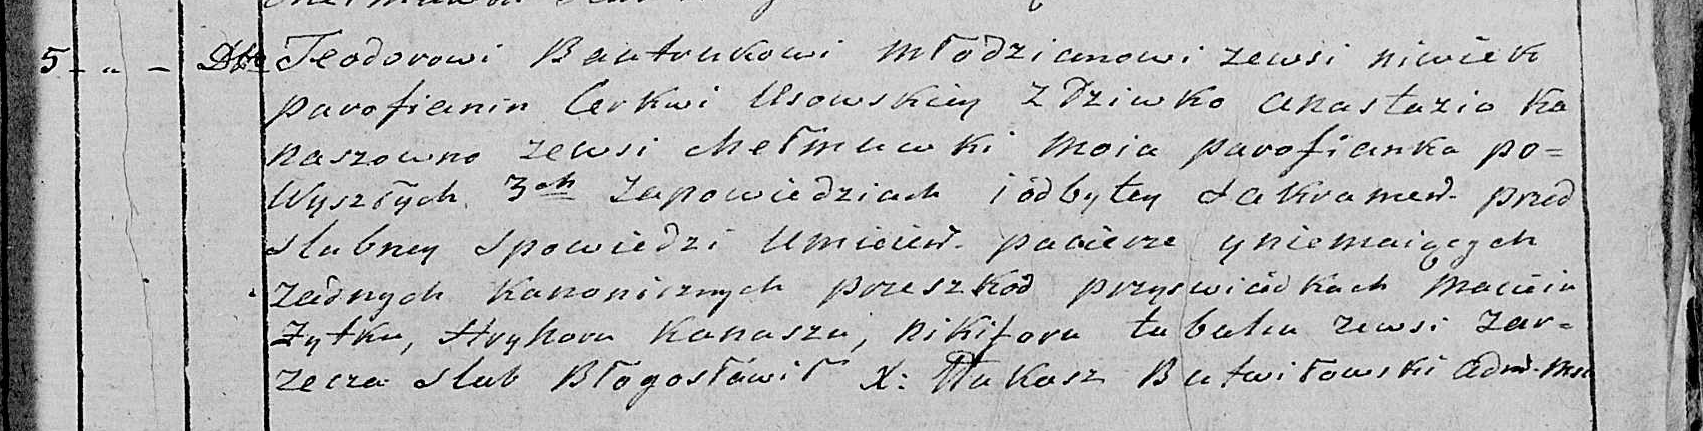 5 - „ - Dtto Teodorowi Bautrukowi Młodzianowi zewsi niwiek
parofianin Cerkwi Usowskiey z Dziwko Anastazio Ka
naszowno zewsi Chełmuwki moia parofianka po=
Wyszłych 3ch zapowiedziach i odbytey Sakramen. przed
slubney Spowiedzi Umieien. pacierze y niemaiących
Zadnych Kanonicznych przeszkod przyswiadkach Macieia
Zytka, Hryhora Kanasza, nikifora tabaka zewsi Zar=
zecza Slub Błogosławił X: Łukasz Butwiłowski Adm.